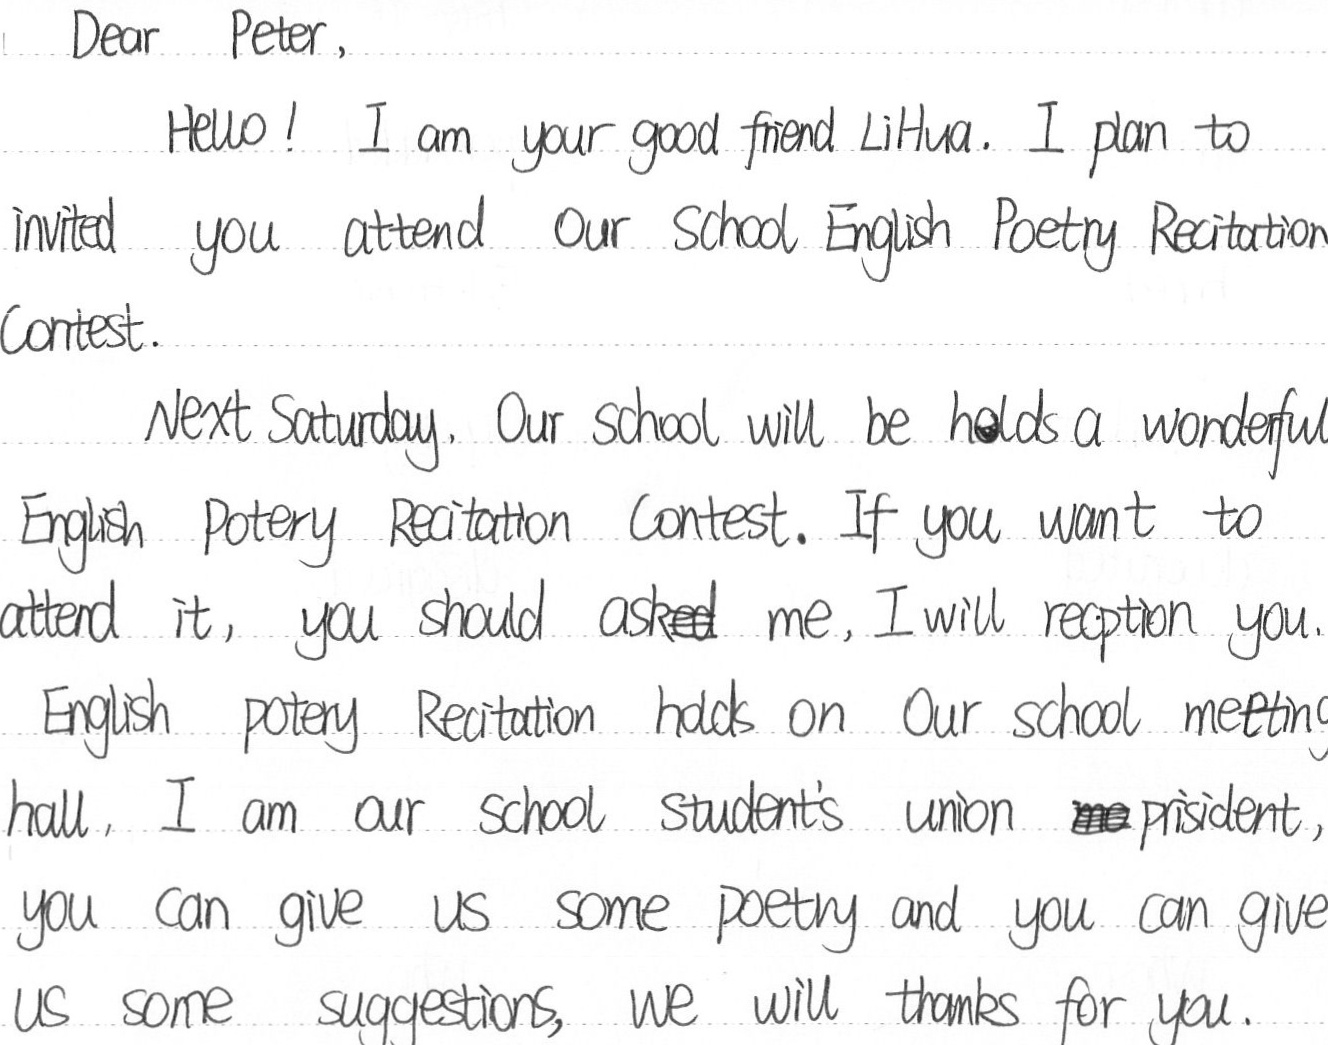 Dear Peter,
Hello! I am your good friend LiHua. I plan to
invited you attend our school English Poetry Recitation
Contest.
Next Saturday. Our school will be holds a wonderful
English Potery Recitation Contest. If you want to
attend it, you should ask me, I will recption you.
English potery Recitation holds on our school meeting
hall. I am our school student's union prisident,
you can give us some poetry and you can give
us some suggestions, we will thanks for you.